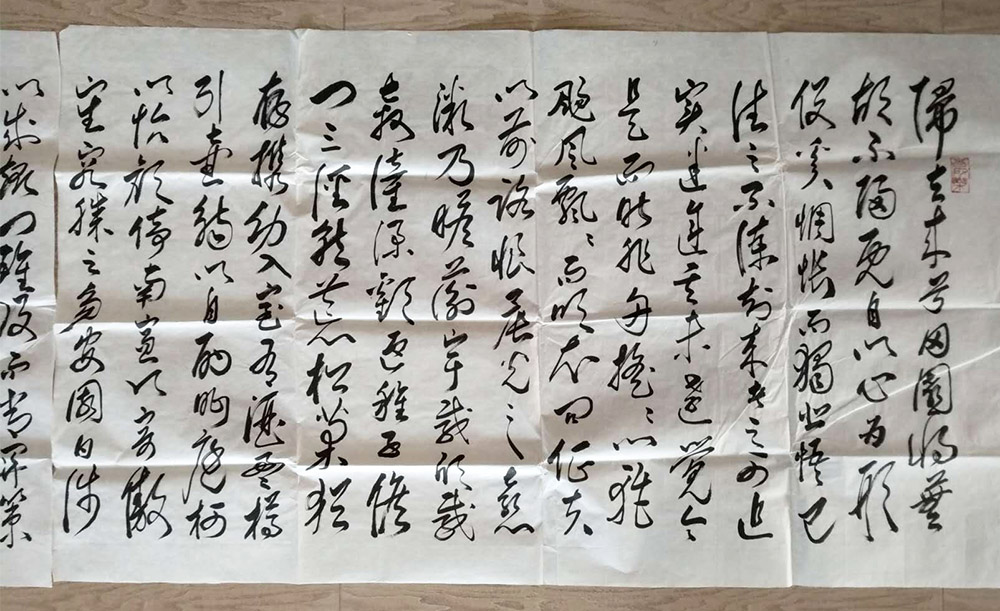 歸去來兮田園將蕪
胡不歸既自以心為形
役奚惆悵而獨悲悟已
往之不諫知來者之可追
實迷途其未遠覺今
是而昨非舟搖〻以輕
颺風飄〻而吹衣問征夫
以前路恨晨光之熹
微乃瞻衡宇載欣載
奔僮僕歡迎稚子候
門三徑就荒松菊猶
存攜幼入室有酒盈樽
引壺觴以自酌眄庭柯
以怡顏倚南窗以寄傲
審容膝之易安園日涉
以成趣門雖設而常關策